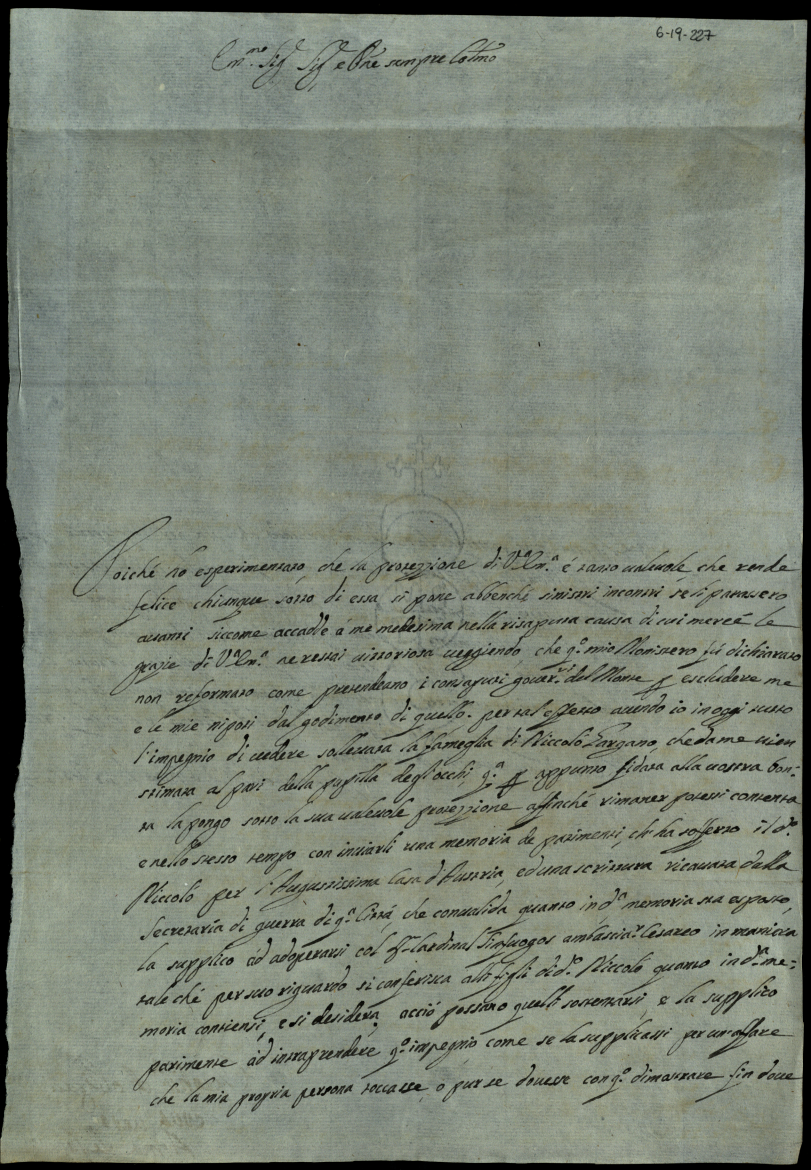 6-19-227
Em.mo Sig.r Sig.r e P̃ne sempre Col.mo
Poiché hò esperimentato, che la protezzione di V.a Em.a é tanto ualeuole, che rende
felice chiunque sotto di essa si pone abbenchè sinistri incontri se li parassero
auanti siccome accadde à me medesima nella risaputa causa di cui mercé le
grazie di V.a Em.a ne restai uittoriosa ueggiendo, che q.o mio Monistero fù dichiarato
non reformato come pretendeano i consaputi gouer.ri del Monte p escludere me
e le mie nipoti dal godimento di quello. per tal effetto auendo io in oggi tutto
l'impegnio di uedere solleuata la fameglia di Niccolò Largano, che da me uien
stimata al pari della pupilla degl'occhi, q.a p appunto fidata alla uostra bon=
tà la pongo sotto la sua ualeuole protezzione affinché rimaner potessi contenta
e nello stesso tempo con inuiarli una memoria de patimenti, ch'hà sofferto il d.o
Niccolò per l'Augustissima Casa d'Austria, ed una scrittura ricauata dalla
Secretaria di guerra di q.a Città, che conualida quanto in d.a memoria sta esposto,
la supplico ad adoperarsi col Sig.r Cardinal Sinfuogos ambascia.r Cesareo in maniera
tale ché per suo riguardo si conferisca alli figli di d.o Niccolò quanto in d.a me=
moria contiensi, e si desidera, acciò possano quelli sostentarsi, e la supplico
parimente ad intraprendere q.o impegnio come se la supplicassi per un affare
che la mia propria persona toccasse, o pur se douesse con q.o dimostrare fin doue